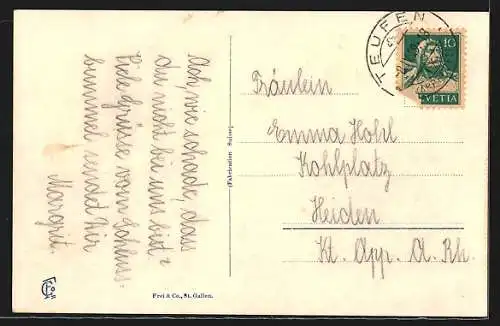 Ach, wie schade, dass
du nicht bei uns bist!
Viele Grüsse vom Schluss-
bummel sendet Dir
Margrit.
(Fabrication Suisse)
Frei & Co., St. Gallen.
TEUFEN
10
HELVETIA
Fräulein
Emma Hohl
Kohlplatz
Heiden
Kt. App. A. Rh.